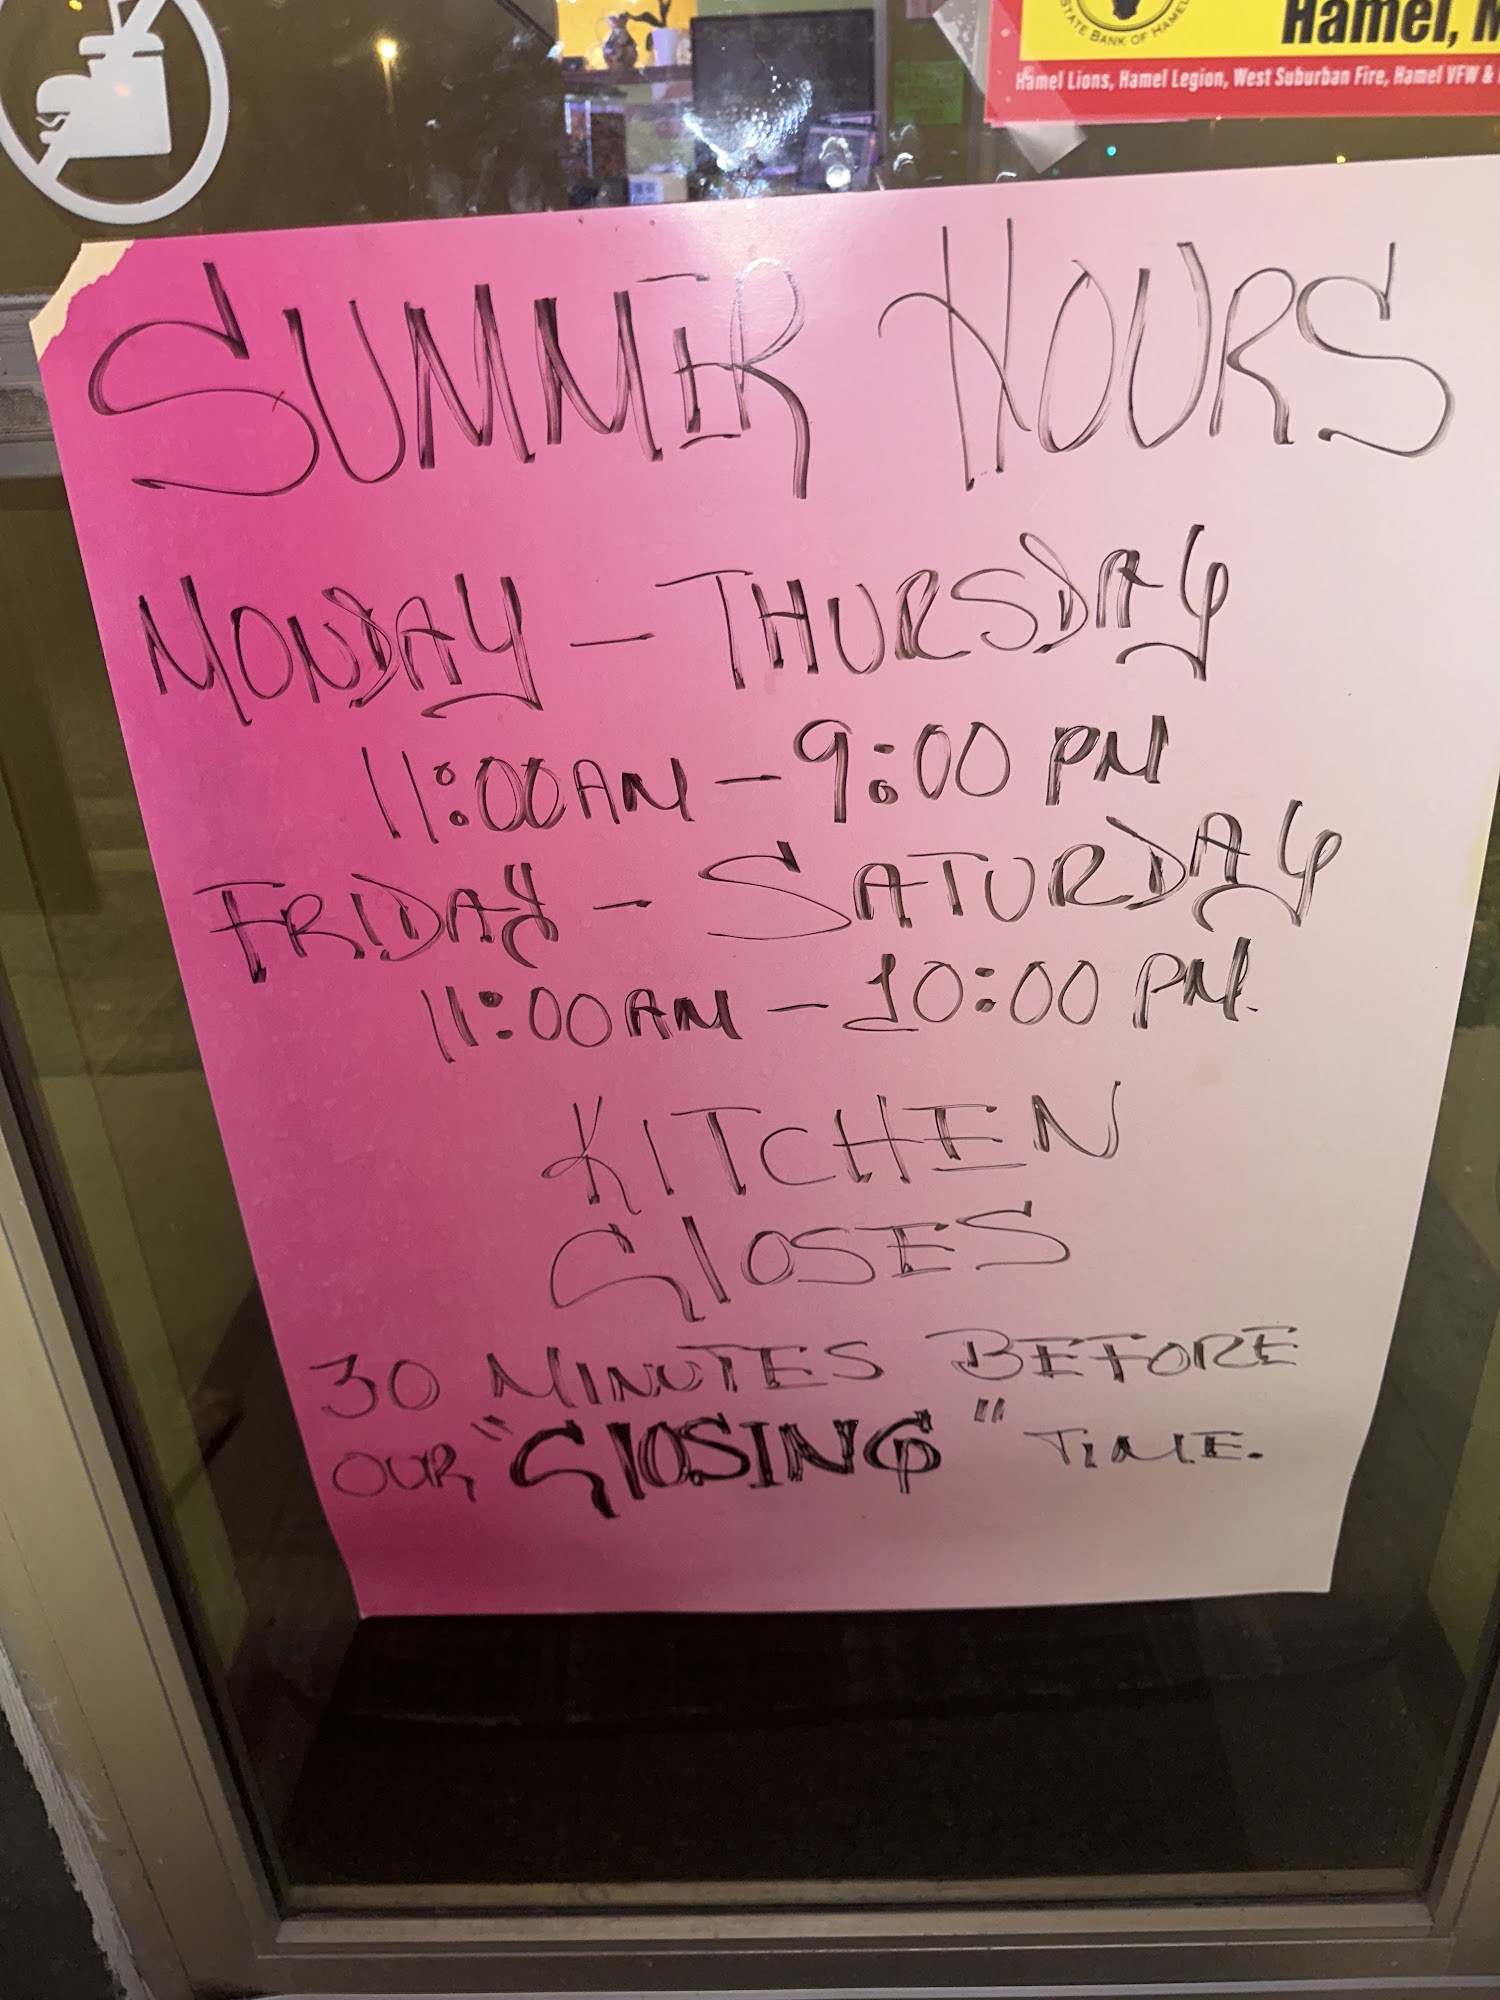 STATE BANK OF HAMEL
Hamel,
Hamel Lions, Hamel Legion, West Suburban Fire, Hamel VFW &
SUMMER HOURS
MONDAY - THURSDAY
11:00AM - 9:00 PM
FRIDAY - SATURDAY
11:00AM - 10:00 PM.
KITCHEN
CLOSES
30 MINUTES BEFORE
OUR "CLOSING" TIME.